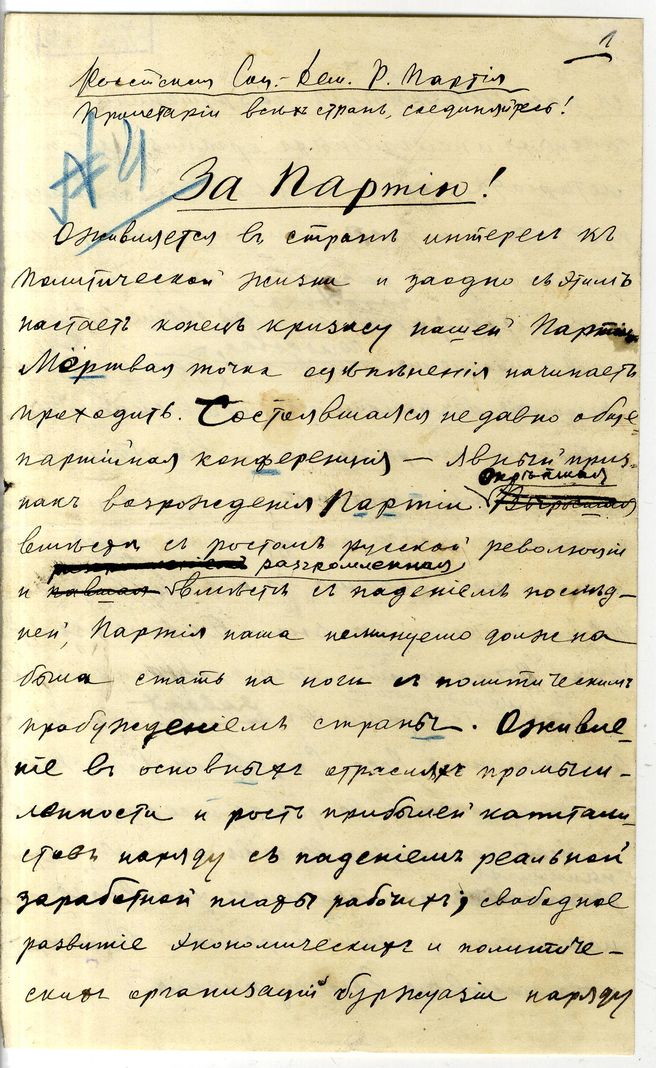 1
Россiйская Соц.-Дем. Р. Партiя
Пролетарiи всѣхъ странъ, соединяйтесь!
За Партiю!
Оживляется въ странѣ интересъ къ
политической жизни и заодно съ этимъ
настаетъ конецъ кризису нашей Партiи.
Мёртвая точка оцѣпененiя начинаетъ
проходить. Состоявшаяся недавно обще-
партiйная конференцiя — явный приз-
Окрѣпшая
накъ возрожденiя Партiи. Выросшая
вмѣстѣ съ ростомъ русской революцiи
разгромленная
и павшая вмѣстѣ съ паденiемъ послѣд-
ней, Партiя наша неминуемо должна
была стать на ноги съ политическимъ
пробужденiемъ страны. Оживле-
нiе въ основныхъ отрасляхъ промыш-
ленности и ростъ прибылей капитали-
стовъ наряду съ паденiемъ реальной
заработной платы рабочихъ; свободное
развитiе экономическихъ и политиче-
скихъ организацiй буржуазiи наряду